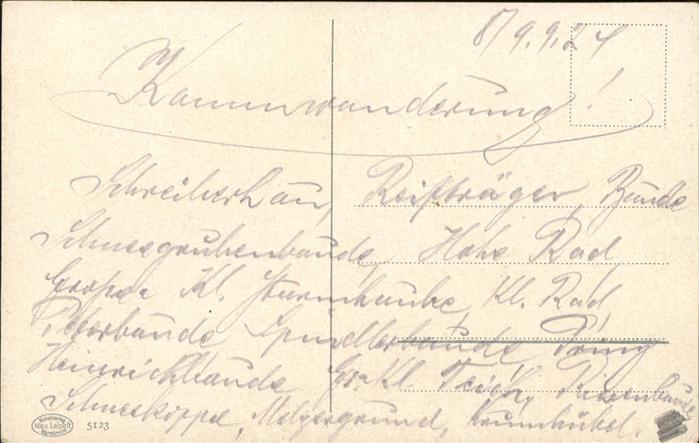 8/9.9.24
Kammwanderung!
Schreiberhau, Reifträger Baude
Schneegrubenbaude, Hohe Rad
Große Kl. Sturmhaube, Kl. Rad,
Peterbaude Spindlerbaude Prinz
Heinrichbaude Gr. Kl. Teich, Riesenbaude
Schneekoppe, Melzergrund, Krummhübel.
Max Leipelt
5123